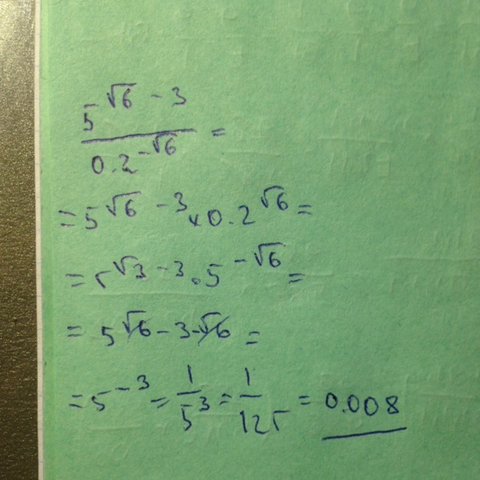 5^{√6 - 3} / 0.2^{-√6} =
= 5^{√6 - 3} × 0.2^{√6} =
= 5^{√3 - 3} · 5^{-√6} =
= 5^{√6 - 3 - √6} =
= 5^{-3} = 1/5^3 = 1/125 = 0.008